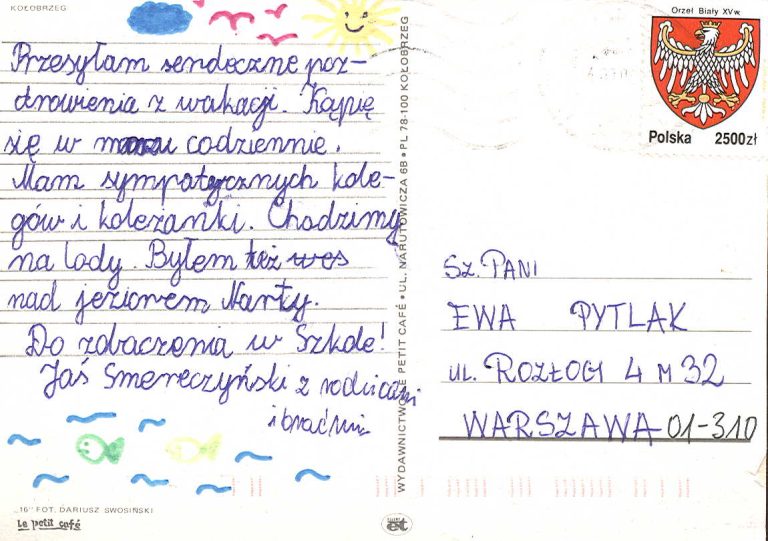 KOŁOBRZEG
Przesyłam serdeczne poz-
drowienia z wakacji. Kąpię
się w morzu codziennie.
Mam sympatycznych kole-
gów i koleżanki. Chodzimy
na lody. Byłem też wes
nad jeziorem Narty.
Do zobaczenia w Szkole!
Jaś Smereczyński z rodzicami
i braćmi
„16” FOT. DARIUSZ SWOSIŃSKI
Le petit café
WYDAWNICTWO LE PETIT CAFÉ • UL. NARUTOWICZA 6B • PL 78-100 KOŁOBRZEG
Orzeł Biały XVw.
Polska 2500zł
SZ. PANI
EWA PYTLAK
UL. ROZŁOGI 4 M 32
WARSZAWA 01-310